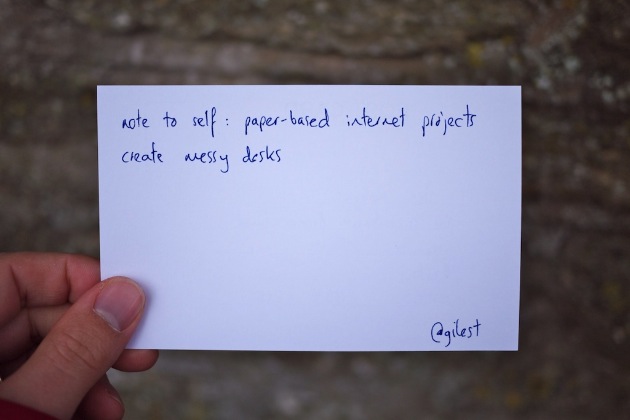 note to self: paper-based internet projects
create messy desks
@gilest